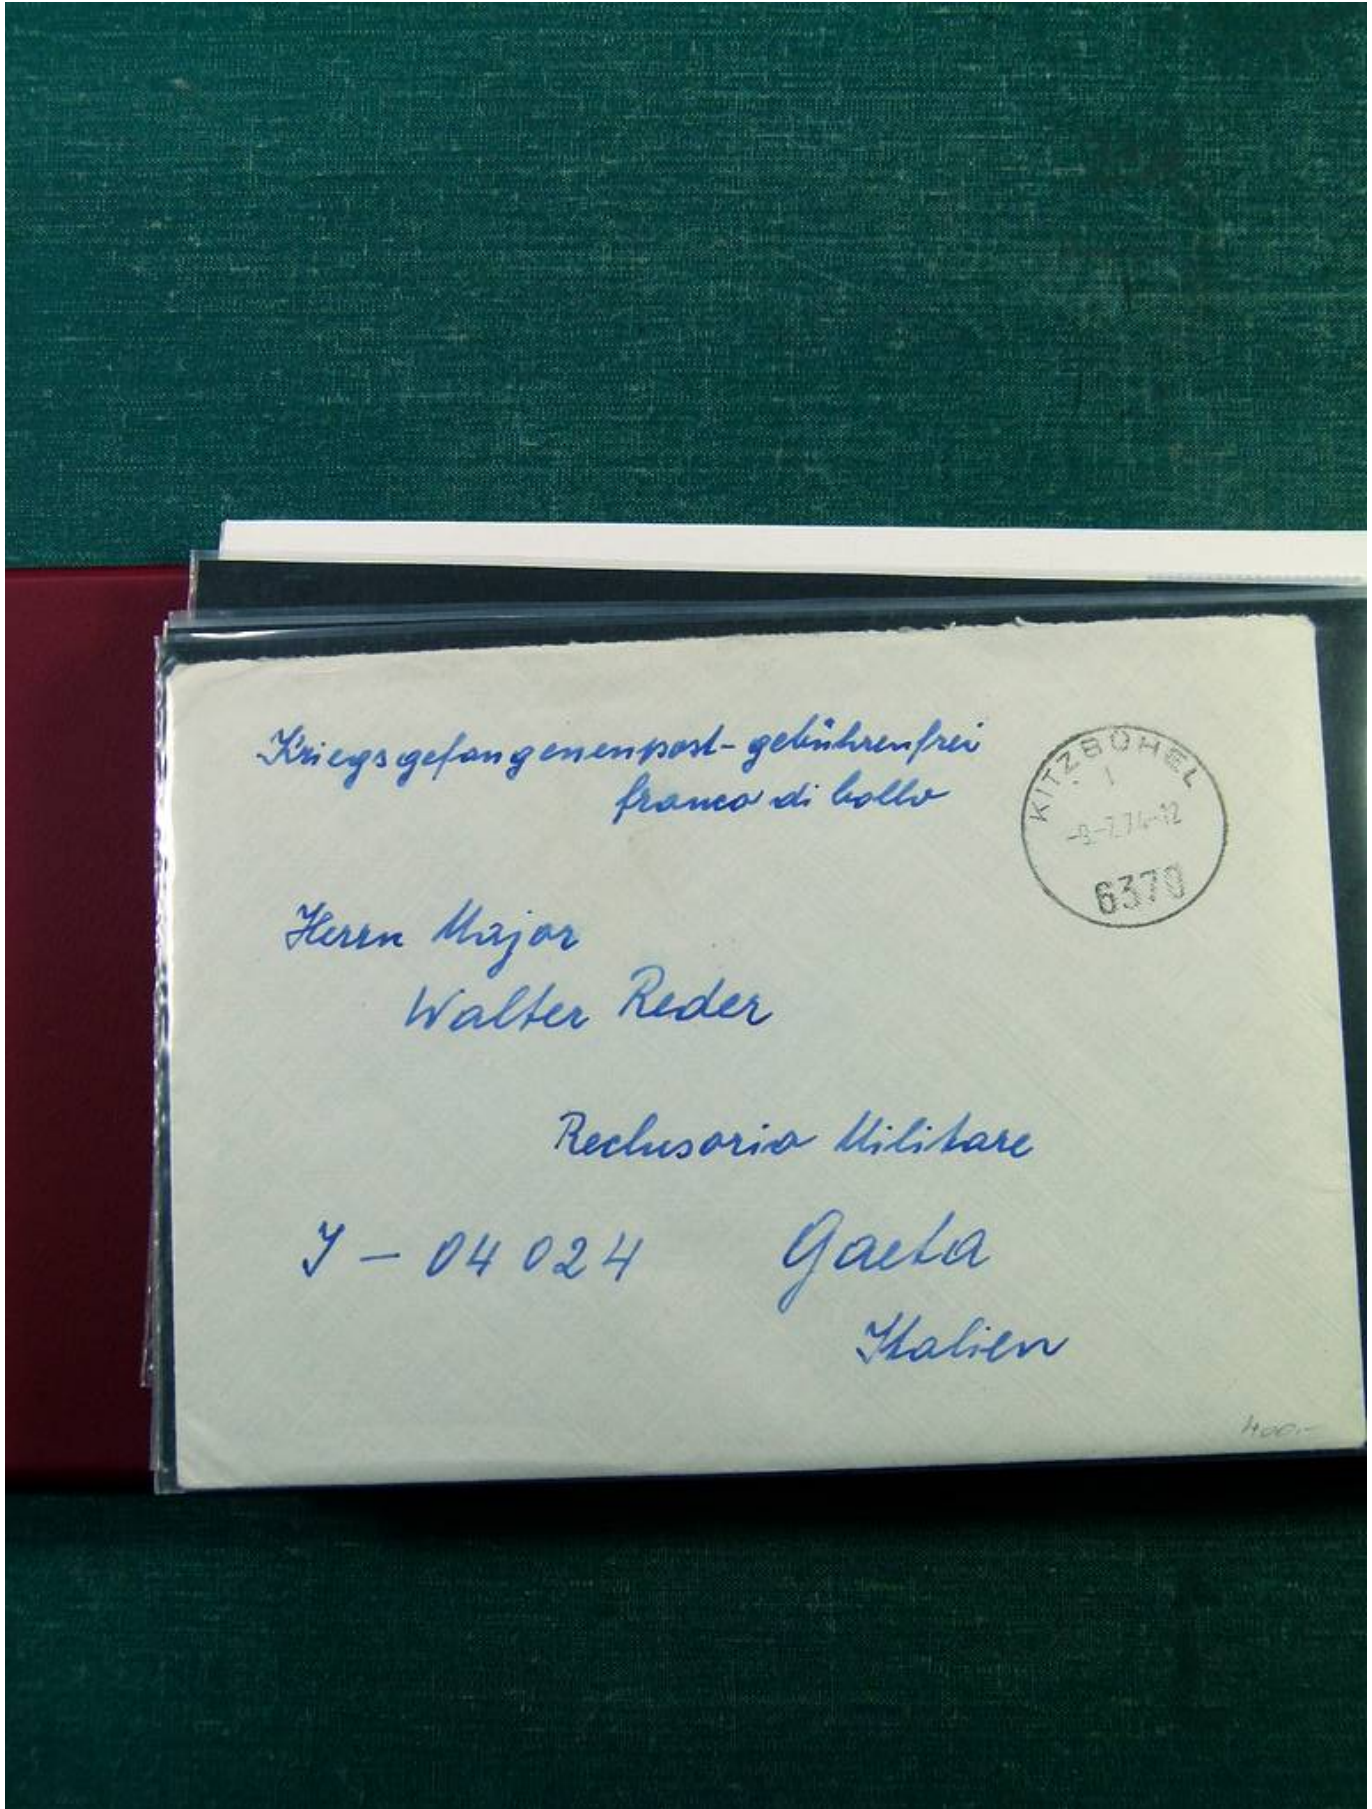 Kriegsgefangenenpost - gebührenfrei
franco di bollo
KITZBÜHEL
1
6370
Herrn Major
Walter Reder
Reclusorio Militare
I - 04 024 Gaeta
Italien
400.-